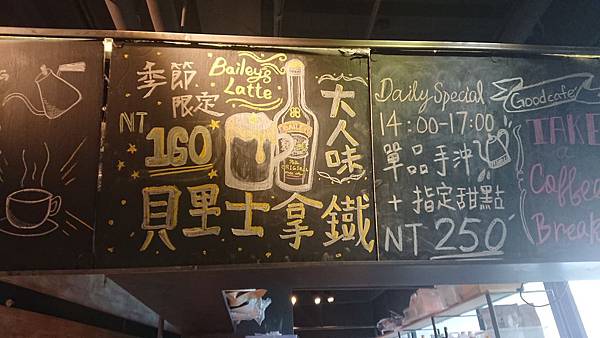 季節
限定
Bailey's
Latte
NT
160
BAILEYS
ORIGINAL
大人味
貝里士拿鐵
Daily Special
14:00-17:00
單品手沖
+指定甜點
NT 250
Goodcafe'
TAKE
a
Coffee
Break